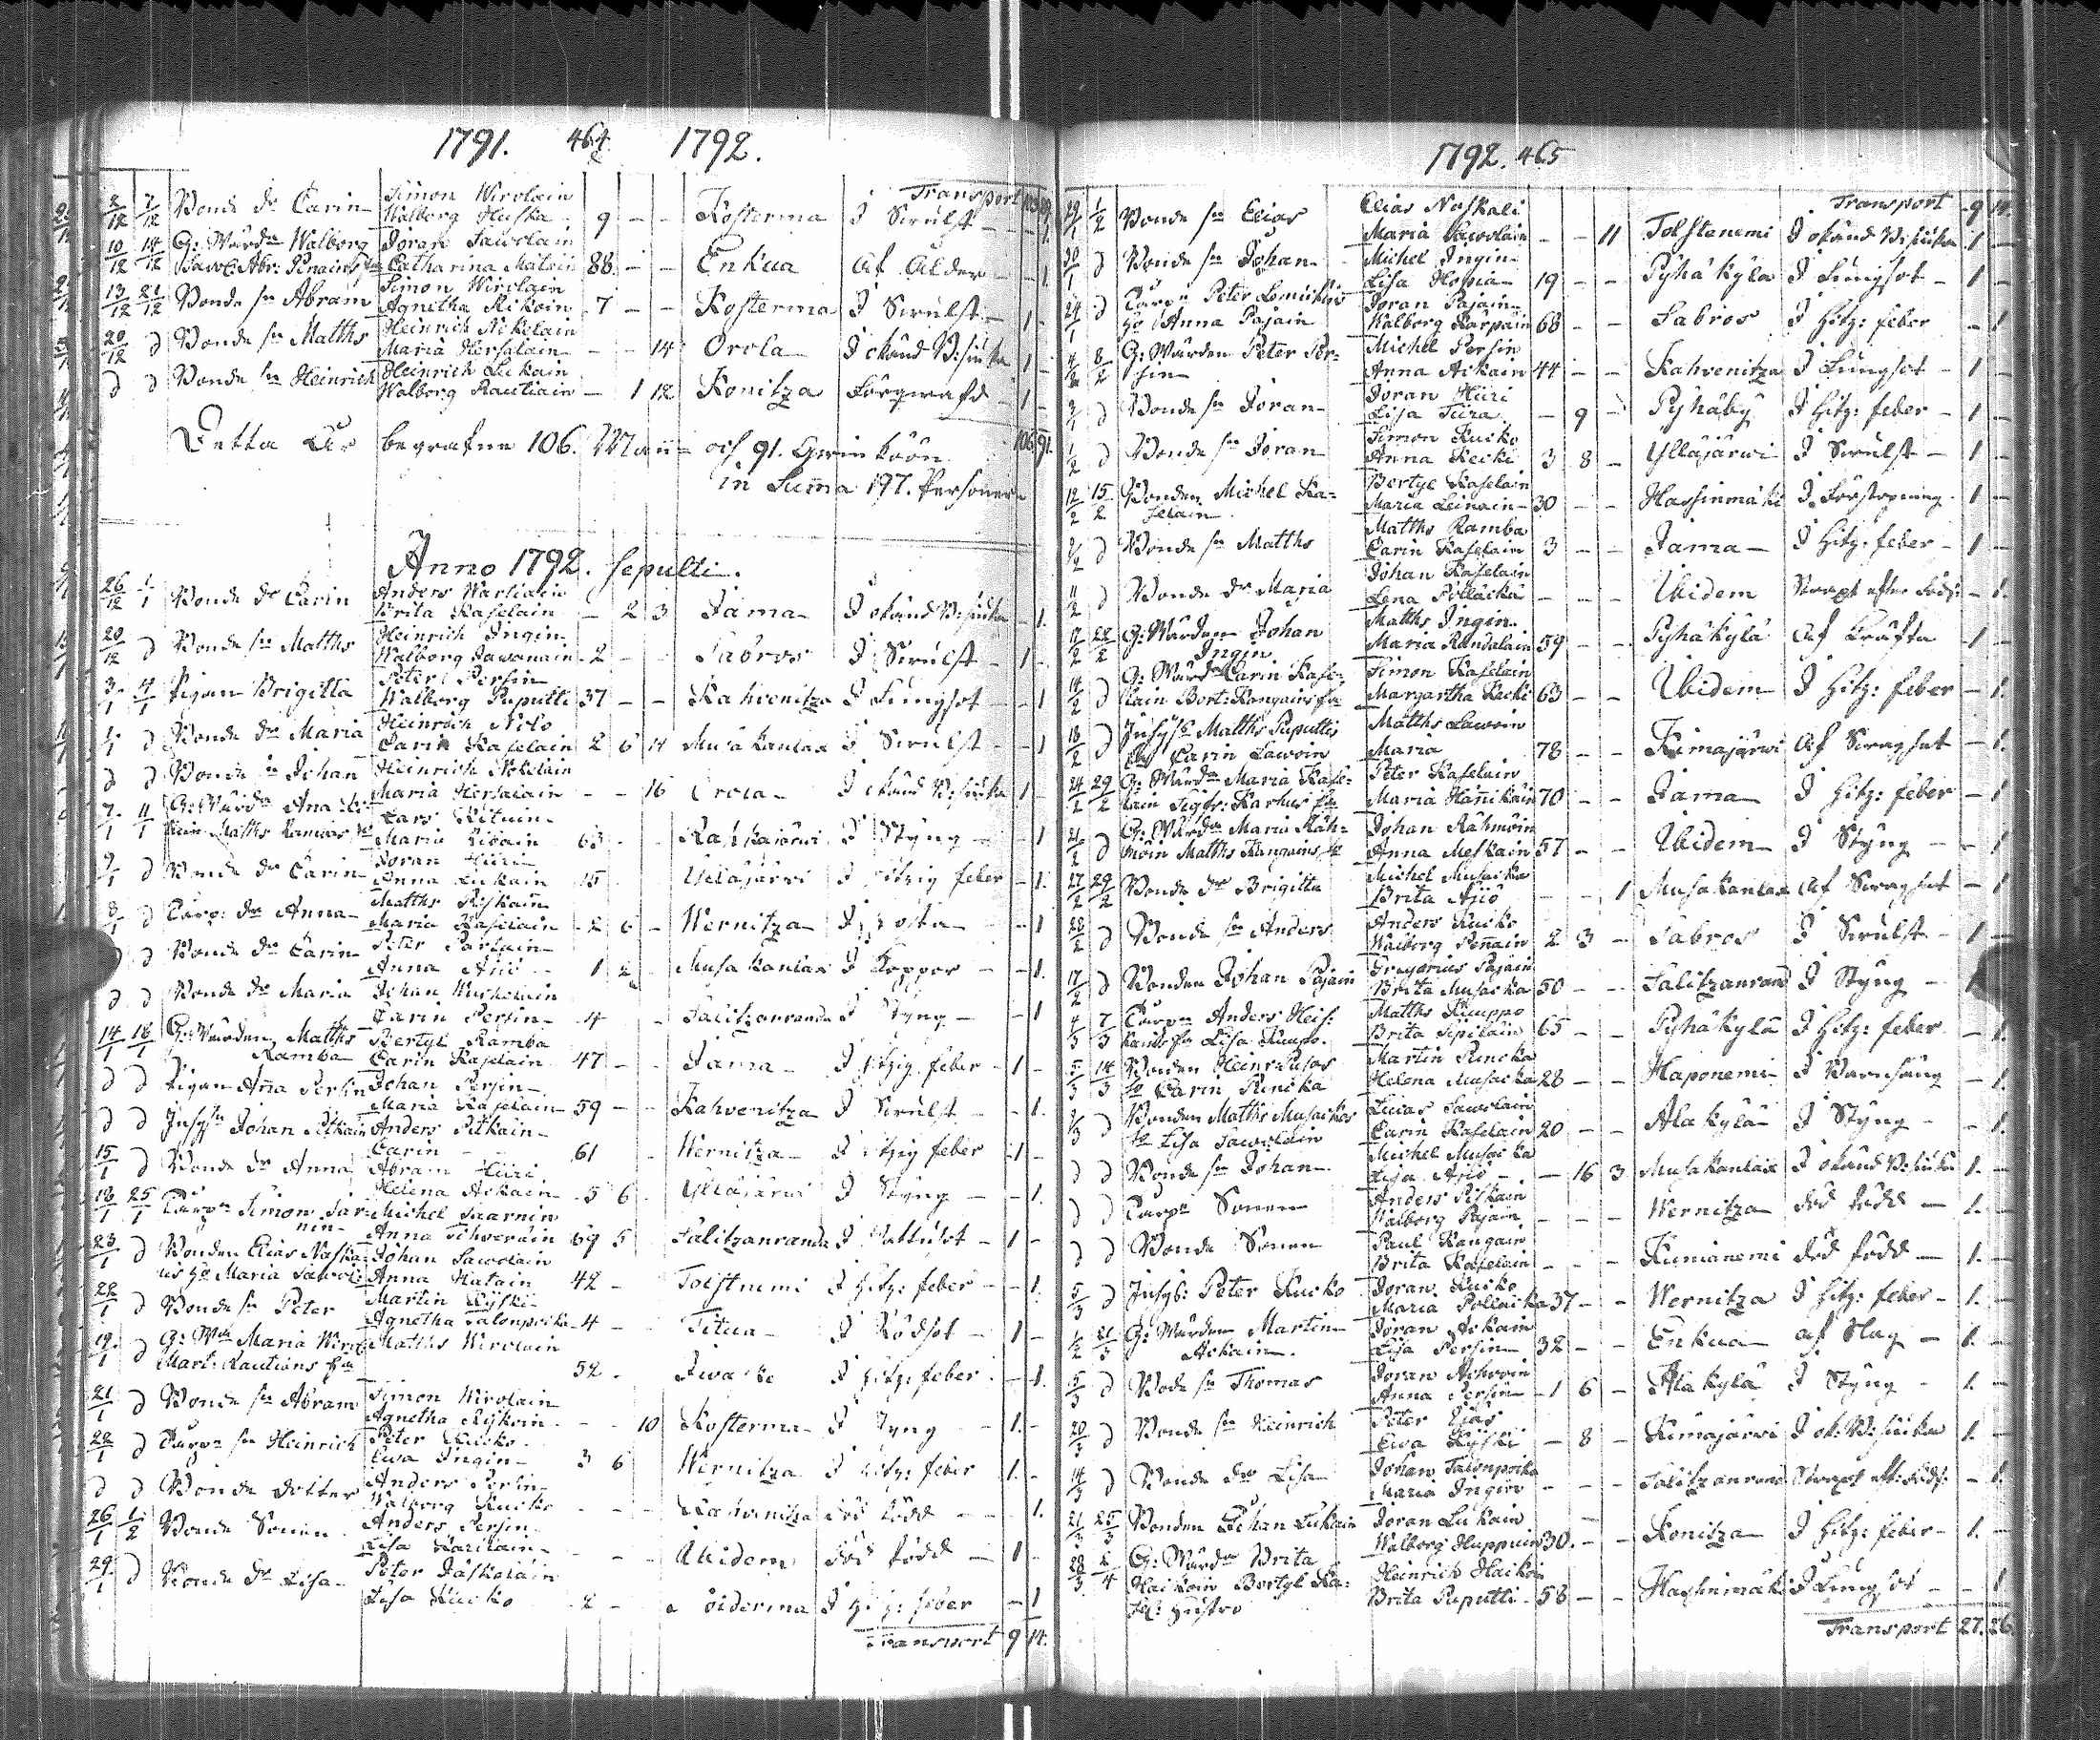 1791. 464 1792.
Transport
2/12 7/12 Bonde dr Carin Simon Wirolain
Walborg Huska 9 - - Kosterma I Swulst - 1.
10/12 14/12 G: Wärdn Walborg Jöran Sawolain
Catharina Matain 88 - - Enkua Af Ålder - 1.
13/12 21/12 Bonde sn Abram Simon Wirolain
Agnetha Rikoin 7 - - Kosterma I Swulst - 1 -
20/12 d Bonde sn Matths Heinrich Nikelain
Maria Hersalain - - 14 Orola I okänd B:siuka 1 -
d d Bonde sn Heinrich Heinrich Lukain
Walborg Rautiain - 1 12 Konitza Förqwafd - 1 -
Detta År begrafne 106. Mann- och 91. Qwinkiöön 106 91.
in Summa 197. Personer
Anno 1792. Sepulti.
26/12 1/1 Bonde dr Carin Anders Wartiain
Brita Kaselain - 2 3 Jama I okänd B:siuka - 1.
20/12 d Bonde sn Matths Heinrich Ingin
Walborg Jawanain 2 - - Sabros I Swulst - 1 -
3/1 4/1 Pigan Brigitta Peter Persin
Walborg Puputti 37 - - Kahvenitza I Lungsot - - 1
1/1 d Bonde dr Maria Heinrich Nilo
Carin Kaselain 2 6 14 Musakanlax I Swulst - - 1
d d Bonde sn Johan Heinrich Nikelain
Maria Hersalain - - 16 Orola I okänd B:siuka 1 -
7/1 11/1 G: Wärdn Ana
Matths Rambas Lars
Maria 63 - - I Styng - 1
9/1 d Bonde dr Carin Jöran Hiiri
Anna Lukain 15 Yläjärwi I Hitzig feber - 1.
8/1 d Carp: dr Anna Matths Riskain
Maria Kaselain 2 6 - Wernitza I Hosta - - 1
d d Bonde dr Carin Peter Parlain
Anna Äijö 1 2 - Musakanlax I Koppor - - 1.
d d Bonde dr Maria Johan
Carin Persin 4 Salitzanranda I Styng - - 1
14/1 18/1 G: Wärden Matths Bertyl Ramba
Ramba Carin Kaselain 47 - - Jama I Hitzig feber - 1 -
d d Pigan Anna Persin Johan Persin
Maria Kaselain 59 - - Kahvenitza I Swulst - - 1.
d d Inhysn Johan Pitkain Anders Pitkain
Carin - - 61 Wernitza I Hitzig feber - 1 -
15/1 d Bonde dr Anna Abram Hiiri
Helena Askain 5 6 Yläjärwi I Styng - - 1.
18/1 25/1 Carpn Simon Sar- Michel Saarnin
nin Anna 69 5 Salitzanranda I Wattusot - 1 -
23/1 d Bonden Elias Naska- Johan Sawolain
lis Ho Maria Sawol: Anna Hatain 42 - Tolstnemi I Hitz: feber - - 1.
22/1 d Bonde sn Peter Martin Kyski
Agnetha Talonpoika 4 - Titua I Rödsot - 1 -
19/1 d G: Wdn Maria Wirol: Matths Wirolain
Mart: Rautians 52 . Hitz: feber - 1.
21/1 d Bonde sn Abram Simon Wirolain
Agnetha Rijkoin - - 10 Kosterma I Styng - 1. -
22/1 d Carpn sn Heinrich Peter Kucko
Ewa Ingin 3 6 Wernitza I Hitz: feber 1. -
d d Bonde dotter Anders Persin
Walborg Kucko - - - Kahvenitza död född - - 1.
26/1 1/2 Bonde Sonen Anders Persin
Lisa Karilain - - - Ibidem död född - 1 -
29/1 d Bonde dr Lisa Peter Jäskeläin
Lisa Kucko 2 - I Hitz: feber - 1
Transport 9 14.
1792. 465
Transport 9 14.
29/1 1/2 Bonde sn Elias Elias Naskali
Maria Sawolain - - 11 Tolstenemi I okänd B:siuka 1 -
30/1 d Bonde sn Johan Michel Ingin
Lisa Hossia 19 - - Pyhäkylä I Lungsot - 1 -
29/1 d Carpn Peter
Ho Anna Pajain Jöran Pajain
Walborg Kärpain 68 - - Sabros I Hitz: feber - 1
8/2 G: Wärden Peter Per-
sin Michel Persin
Anna Askain 44 - - Kahvenitza I Lungsot - 1 -
d Bonde sn Jöran Jöran Hiiri
Lisa - 9 - Pyhäby I Hitz: feber - 1 -
1/2 d Bonde sn Jöran Simon Kucko
Anna Kecki 3 8 - Ylläjärwi I Swulst - 1 -
12/2 15/2 Bonden Michel Ka-
selain Bertyl Kaselain
Maria Leinain 30 - - Hassinmäki I Förstopning 1 -
d Bonde sn Matths Matths Ramba
Carin Kaselain 3 - - Jama I Hitz: feber - 1 -
11/2 d Bonde dr Maria Johan Kaselain
Lena Pöllacka - - - Ibidem Strapt efter föds: - 1.
17/2 22/2 G: Wärden Johan
Ingin Matths Ingin
Maria Randalain 59 - - Pyhäkylä Af Kräfta - 1 -
14/2 d G: Wärdn Carin Kase-
lain Bert: Kangains Simon Kaselain
Margartha Kecki 63 - - Ibidem I Hitz: feber - 1.
18/2 d Inhyse Matths Puputtis
Carin Lawoin Matths Lawoin
Maria 78 - - Kimajärwi Af Swaghet - 1.
24/2 29/2 G: Wärdn Maria Kase-
lain Sigfr: Karhus Peter Kaselain
Maria Hänikäin 70 - - Jama I Hitz: feber - 1
21/2 d G: Wärdn Maria Räh-
möin Matths Kangains Johan Rähmöin
Anna Meskain 57 - - Ibidem I Styng - - 1
27/2 29/2 Bonde dr Brigitta Michel Musacka
Brita Äijö - - 1 Musakanlax Af Swaghet - 1
28/2 d Bonde sn Anders Anders Kucko
Walborg Pennain 2 3 - Sabros I Swulst - 1 -
17/2 d Bonden Johan Pajain Gregorius Pajain
Brita Musacka 50 - - Salitzanrand I Styng -
4/3 7/3 Carpn Anders Heis-
Lisa Kimppo. Matths Kimppo
Brita Sipilain 65 - - Pyhäkylä I Hitz: feber - 1.
5/3 14/3 Bonden Heinr Pusas
Ho Carin Rincka Martin Rincka
Helena Musacka 28 - - Haponemi I Barnsäng - 1.
d Bonden Matths Musackas
Lisa Sawolain Lucas Sawolain
Carin Kaselain 20 - - Alakylä I Styng - - 1.
d d Bonde sn Johan Michel Musacka
Lisa Äijö - 16 3 Musakanlax I okänd B:siuka 1. -
d d Carpn Sonen Anders Riskain
Walborg Pajain - - - Wernitza död född - 1. -
d d Bonde Sonen Paul Kangain
Brita Kaselain - - - Kunianemi död född - 1. -
5/3 d Inhys: Peter Kucko Jöran Kucko
Maria Pollacka 37 - - Wernitza I Hitz: feber - 1. -
21/3 G: Wärden Martin
Askain. Jöran Askain
Lisa Persin 32 - - Enkua af Slag - 1. -
15/3 d Bode sn Thomas Jöran
Anna Persin - 1 6 - Alakylä I Styng - 1. -
20/3 d Bonde sn Heinrich Peter
Ewa Kyski - 8 - Kimajärwi I ok: B: siuka 1. -
14/3 d Bonde dr Lisa Johan Talonpoika
Maria Ingin - - - Salitzanrand Strapt eft: föds: - 1.
21/3 25/3 Bonden Johan Lukain Jöran Lukain
Walborg Huppuin 30. - - Konitza I Hitz: feber - 1. -
28/3 1/4 G: Wärdn Brita
Haikoin Bertyl Ka-
sel: Hustro Heinrich Haikoin
Brita Puputti 58 - - Hassinmäki I Lungsot - - 1
Transport 27. 26.